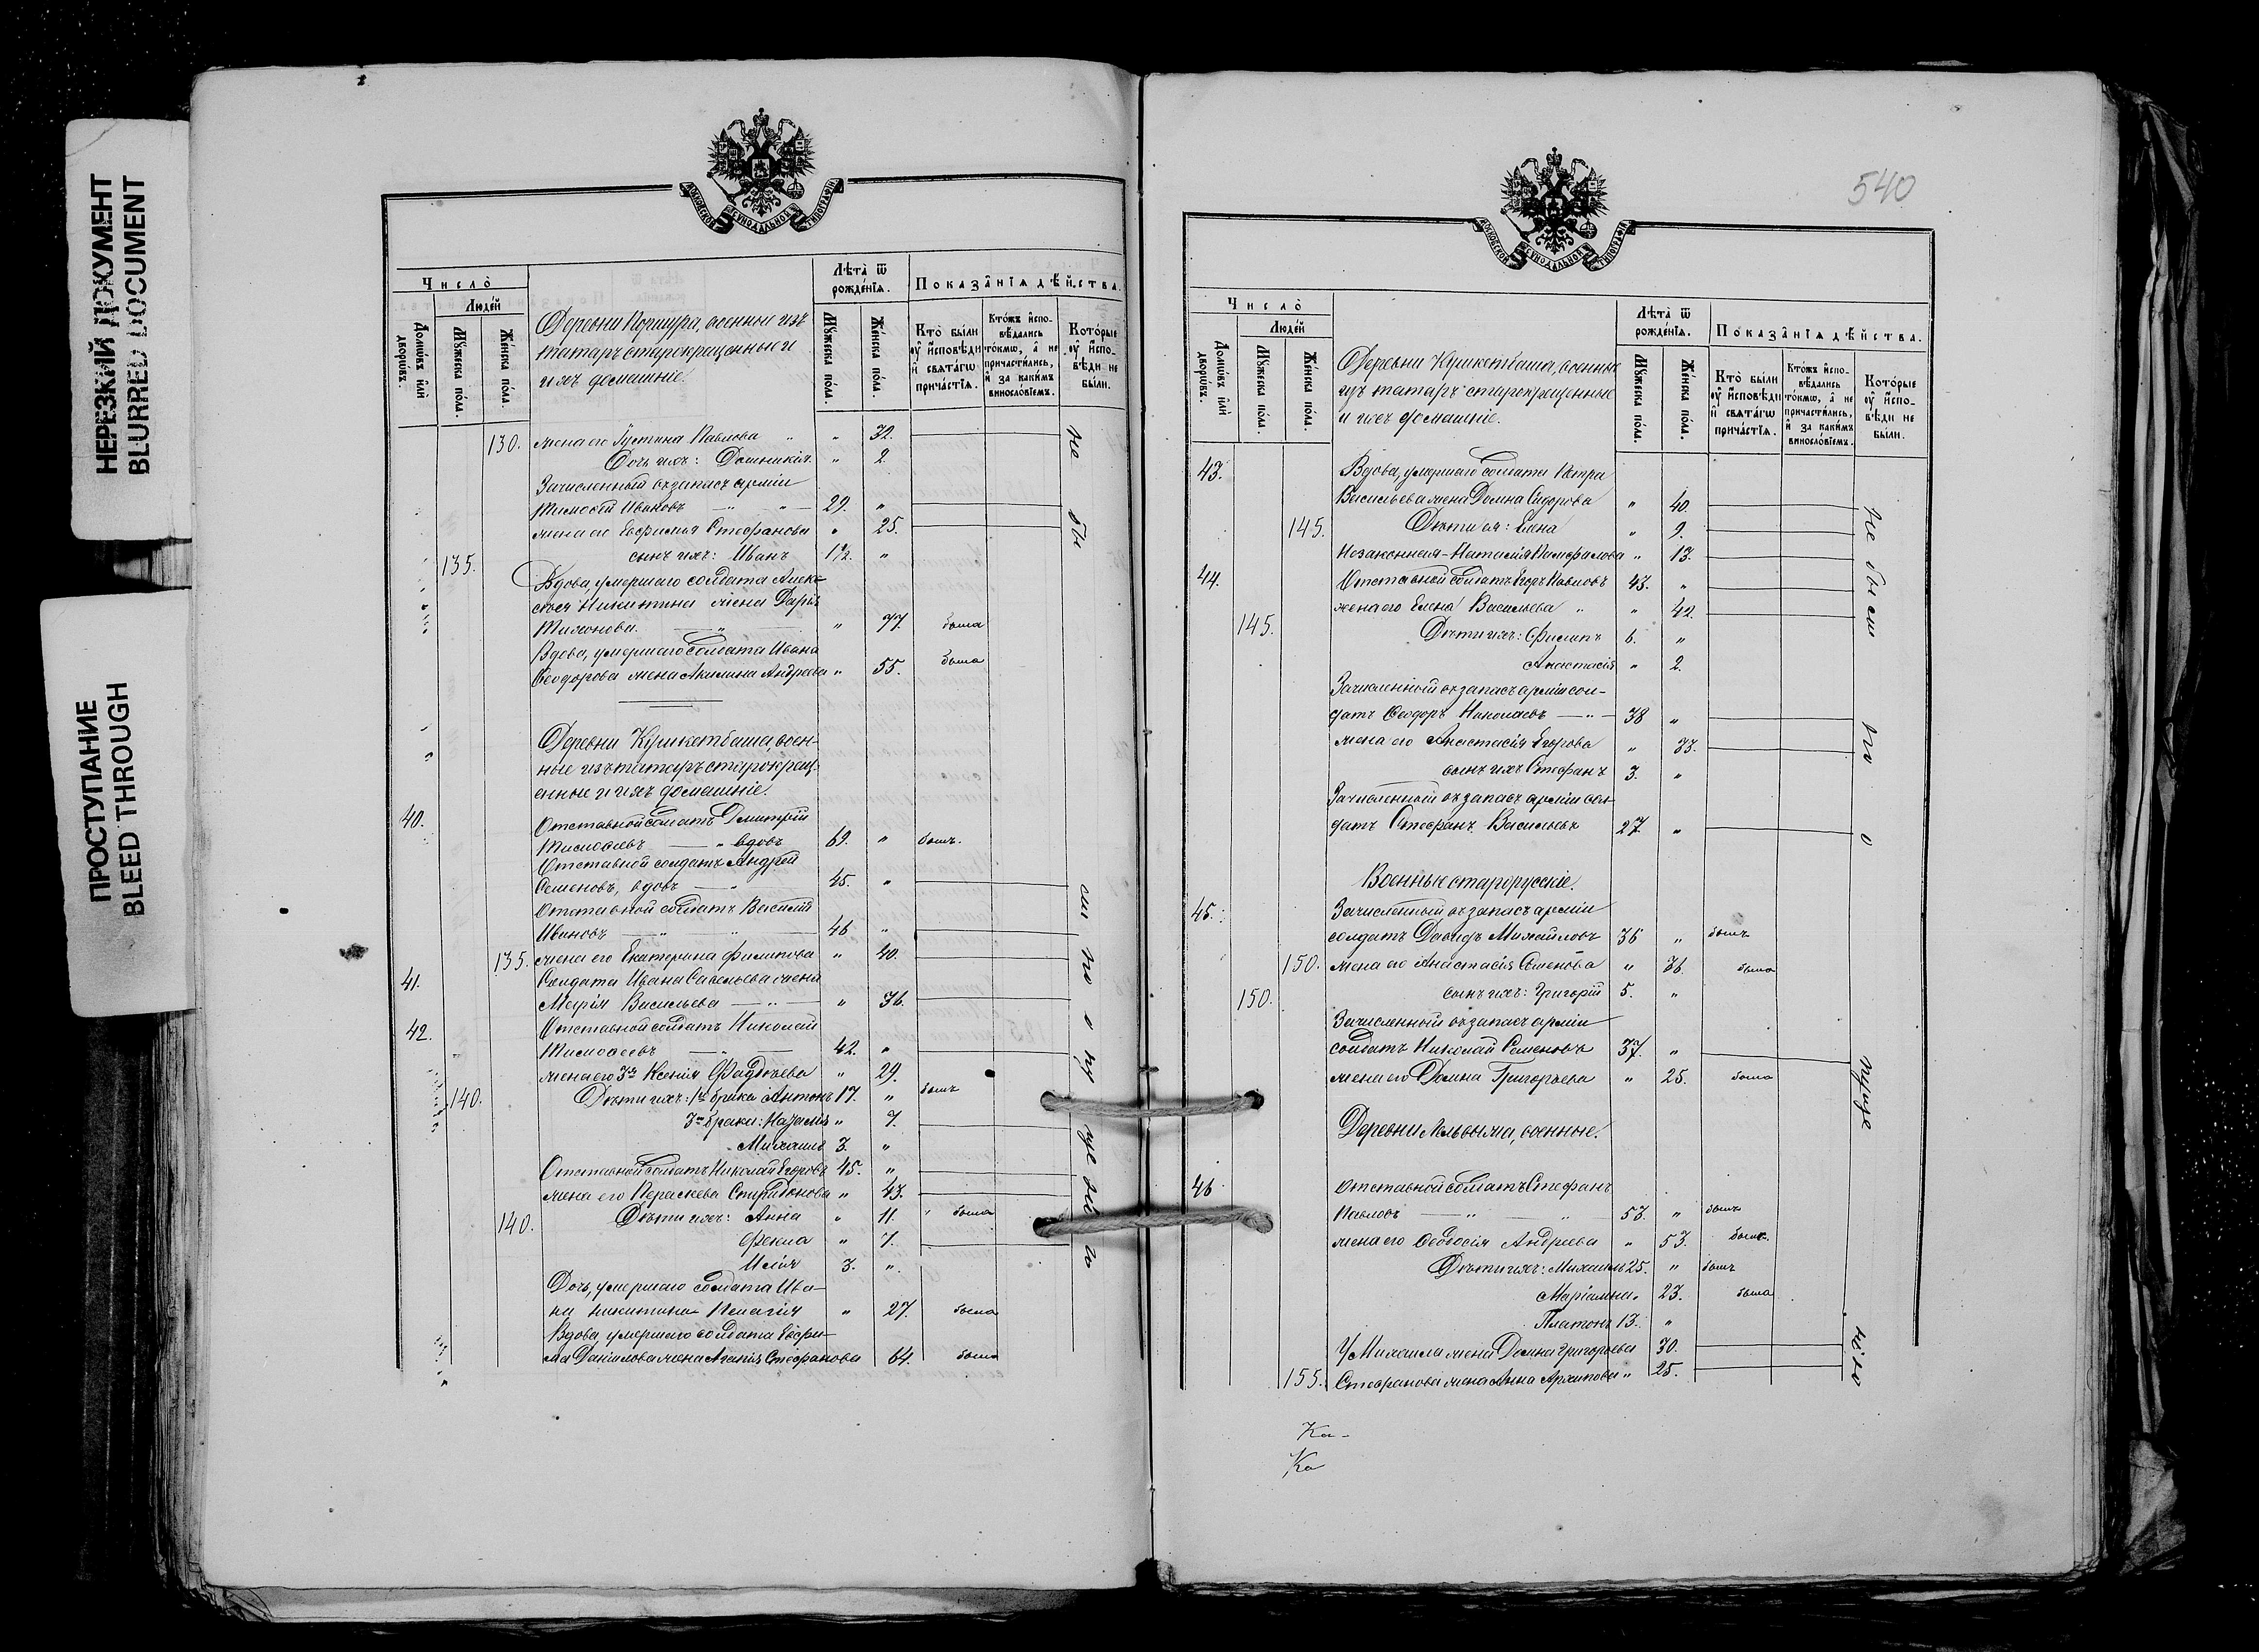 НЕРЕЗКИЙ ДОКУМЕНТ
BLURRED DOCUMENT
ПРОСТУПАНИЕ
BLEED THROUGH
МОСКОВСКОЙ СѴНОДАЛЬНОЙ ТИПОГРАФІИ
Число̀
Люде́й
Домѡ́въ и҆лѝ дворѡ́въ.
Мꙋ́жеска по́ла.
Же́нска по́ла.
Деревни Поршура, военные изъ
татаръ старокрещенные и
ихъ домашніе.
Лѣта̀ ѿ рожде́нїѧ.
Мꙋ́жеска по́ла.
Же́нска по́ла.
Показа̑нїѧ дѣ́йства.
Кто̀ бы́ли ᲂу҆ и҆сповѣ́ди и҆ свѧта́гѡ прича́стїѧ.
Кто́жъ и҆сповѣ́дались то́кмѡ, а҆ не причасти́лись, и҆ за каки́мъ винносло́вїемъ.
Кото́рые ᲂу҆ и҆сповѣ́ди не бы́ли.
130. жена его Іустина Павлова " " 32.
Дочь ихъ: Домникія " 2.
Зачисленный въ запасъ арміи
Тимофей Ивановъ — " — 29. "
жена его Евфимья Стефанова " 25.
135. сынъ ихъ: Иванъ 1½. "
Вдова, умершаго солдата Алек-
сѣя Никитина жена Дарья
Тихонова. — " — " 77. была
Вдова, умершаго солдата Ивана
Ѳеодорова жена Акилина Андреева " 55. была
Деревни Кушкетбаша, воен-
ные изъ татаръ старокрещ-
енные и ихъ домашніе.
40. Отставной солдатъ Димитрій
Тимофеевъ — " вдовъ 69. " былъ.
Отставной солдатъ Андрей
Семеновъ, вдовъ — " — 45. "
Отставной солдатъ Василій
Ивановъ — " — " — 46 "
135. жена его Екатерина Филипова " 40.
41. Солдата Ивана Савельева жена
Марія Васильева — " — " 36.
42. Отставной солдатъ Николай
Тимофеевъ — " — 42. "
жена его Ксенія Фаддѣева " 29.
140. Дѣти ихъ: брака Антонъ 17. " былъ
брака: Наталія " 7.
Михаилъ 3. "
Отставной солдатъ Николай Егоровъ 45. "
жена его Параскева Спиридонова " 43.
140. Дѣти ихъ: Анна " 11. была
Фекла " 7.
Илія 3. "
Дочь, умершаго солдата Ива-
на Никитина Пелагія " 27. была
Вдова, умершаго солдата Евфи-
ма Данилова жена Агапія Стефанова 64. была
не бы ли по о
540
МОСКОВСКОЙ СѴНОДАЛЬНОЙ ТИПОГРАФІИ
Число̀
Люде́й
Домѡ́въ и҆лѝ дворѡ́въ.
Мꙋ́жеска по́ла.
Же́нска по́ла.
Деревни Кушкетбаша, военные
изъ татаръ старокрещенные
и ихъ домашніе.
Лѣта̀ ѿ рожде́нїѧ.
Мꙋ́жеска по́ла.
Же́нска по́ла.
Показа̑нїѧ дѣ́йства.
Кто̀ бы́ли ᲂу҆ и҆сповѣ́ди и҆ свѧта́гѡ прича́стїѧ.
Кто́жъ и҆сповѣ́дались то́кмѡ, а҆ не причасти́лись, и҆ за каки́мъ винносло́вїемъ.
Кото́рые ᲂу҆ и҆сповѣ́ди не бы́ли.
43. Вдова, умершаго солдата Петра
Васильева жена Домна Сидорова " 40.
145. Дѣти ея: Елена " 9.
Незаконная - Наталія Памфилова " 13.
44. Отставной солдатъ Егоръ Павловъ 43. "
жена его Елена Васильева " " 42.
145. Дѣти ихъ: Филипъ 6. "
Анастасія " 2.
Зачисленный въ запасъ арміи сол-
датъ Ѳеодоръ Николаевъ — " — 38 "
жена его Анастасія Егорова " 33.
сынъ ихъ Стефанъ 3. "
Зачисленный въ запасъ арміи сол-
датъ Стефанъ Васильевъ 27. "
Военные старорусскіе.
45. Зачисленный въ запасъ арміи
солдатъ Давидъ Михайловъ 36 " былъ
150. жена его Анастасія Семенова " 36. была
150. сынъ ихъ: Григорій 5. "
Зачисленный въ запасъ арміи
солдатъ Николай Семеновъ 37. "
жена его Домна Григорьева " 25. была
Деревни Альвыма, военные.
46 Отставной солдатъ Стефанъ
Павловъ — " — " — 53. " былъ
жена его Ѳеодосія Андреева " 53. была.
Дѣти ихъ: Михаилъ 25. " былъ
Маріамна " 23. была
Платонъ 13. "
У Михаила жена Домна Григорьева 30.
155. Стефанова жена Анна Архипова " 25.
не были по о
Ка-
Ка